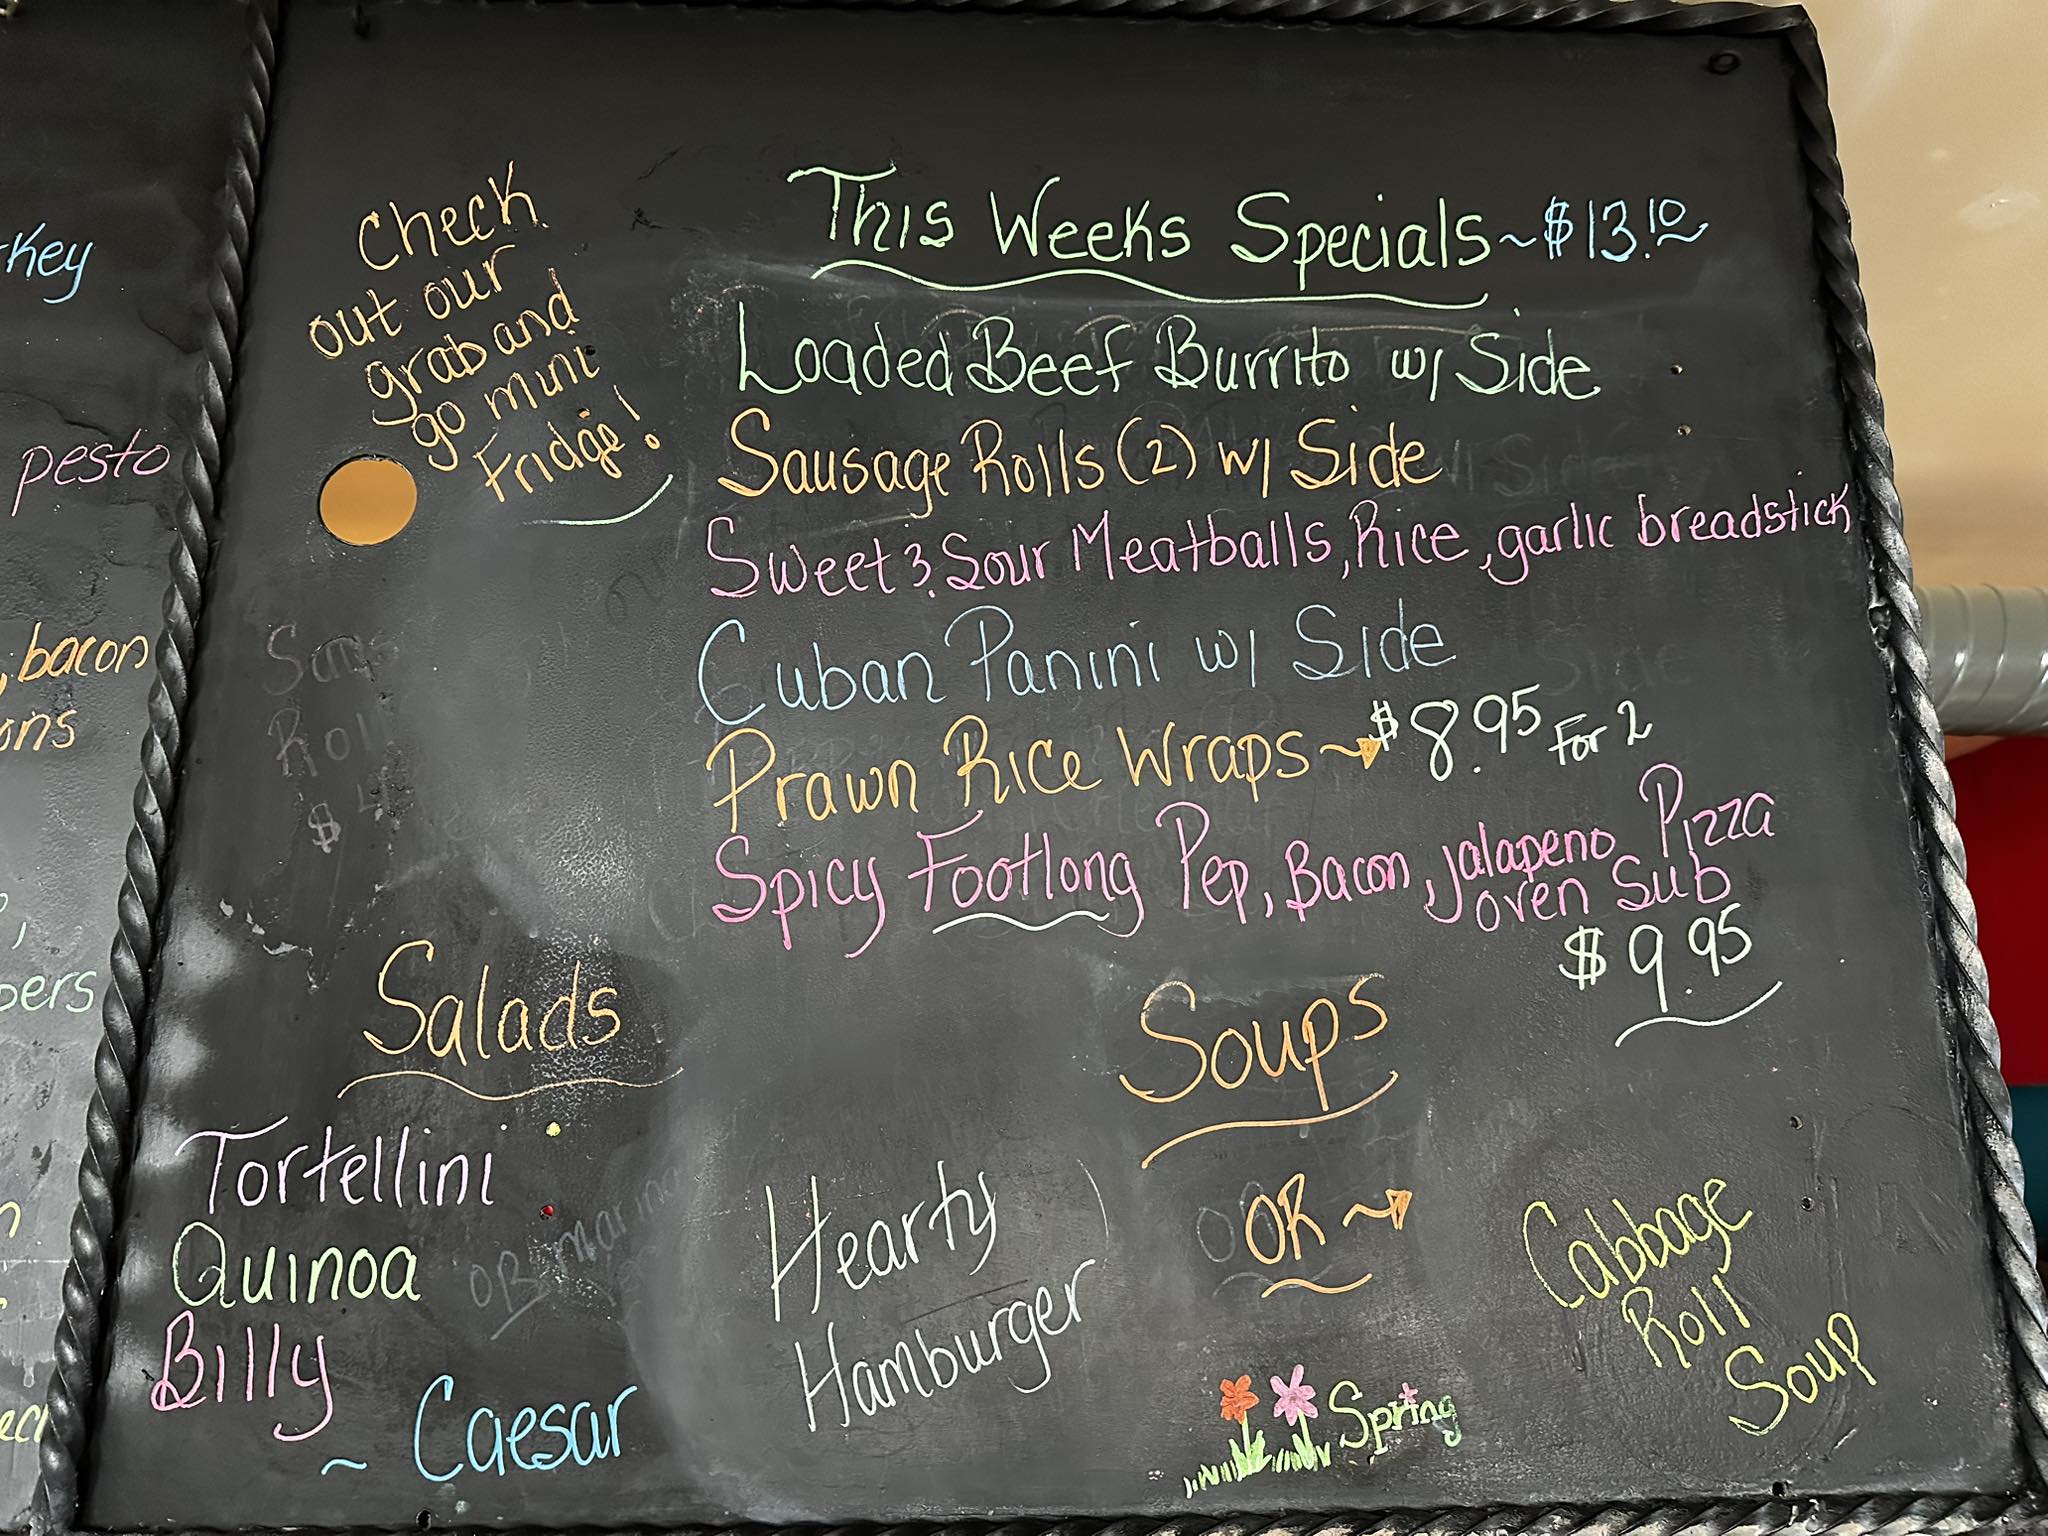 rkey
pesto
, bacon
ons
pers
Check
out our
grab and
go mini
Fridge!
This Weeks Specials ~ $13.10 ~
Loaded Beef Burrito w/ Side
Sausage Rolls (2) w/ Side
Sweet & Sour Meatballs, Rice, garlic breadstick
Cuban Panini w/ Side
Prawn Rice Wraps ~→ $8.95 For 2
Spicy Footlong Pep, Bacon, jalapeno Pizza
oven Sub
$9.95
Salads
Tortellini
Quinoa
Billy
~ Caesar
Soups
Hearty
Hamburger
OR ~→
Cabbage
Roll
Soup
Spring